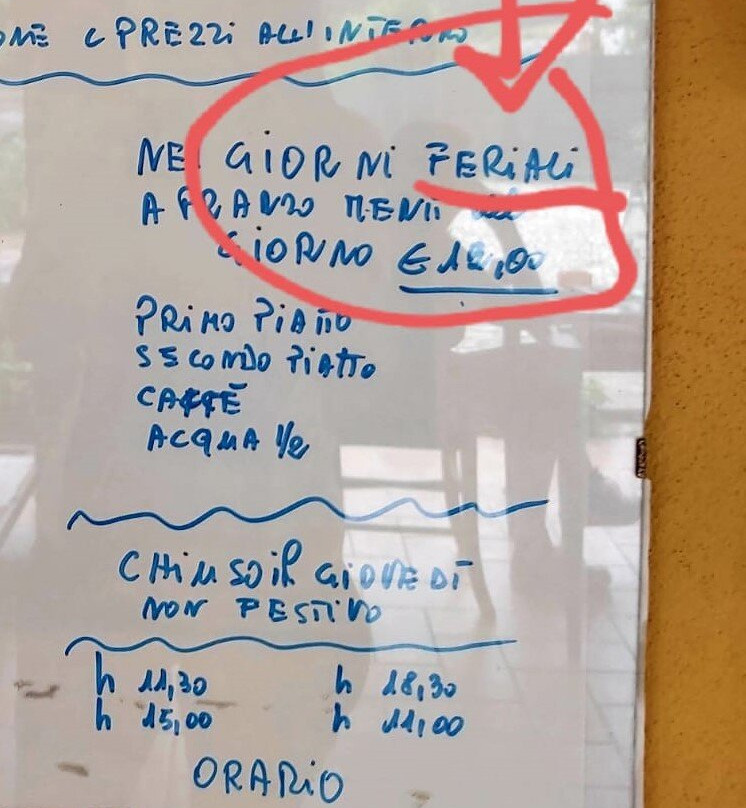 OME E PREZZI ALL'INTERNO
NEI GIORNI FERIALI
A PRANZO MENÙ del
GIORNO € 12,00
PRIMO PIATTO
SECONDO PIATTO
CAFFÈ
ACQUA 1/2
CHIUSO il GIOVEDÌ
NON FESTIVO
h 11,30 h 18,30
h 15,00 h 11,00
ORARIO